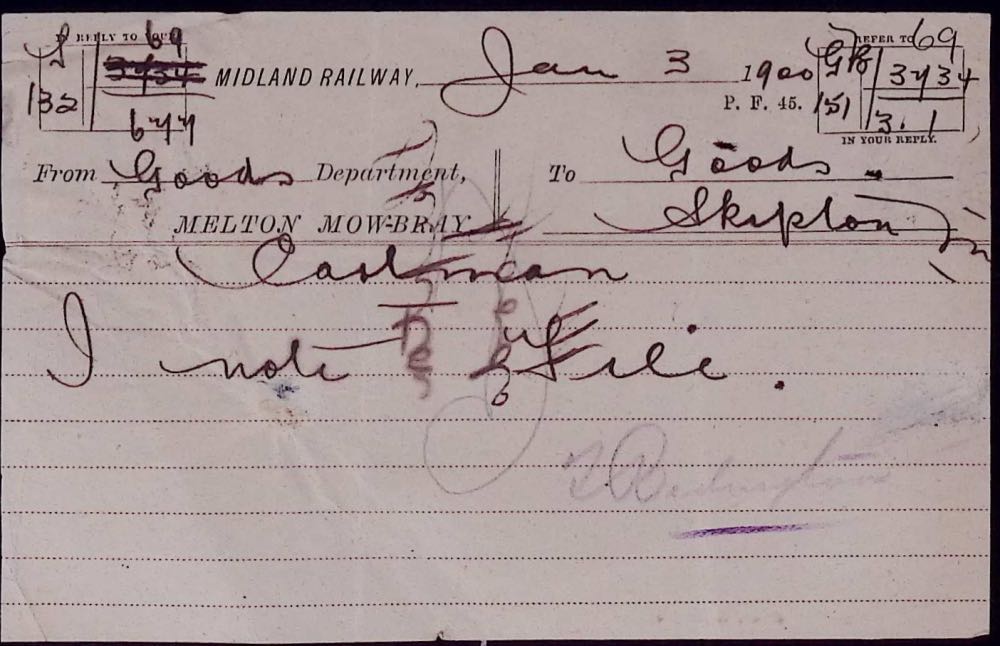 IN REPLY TO YOUR 69
S 3734
132 677
MIDLAND RAILWAY, Jan 3 1900
P. F. 45.
REFER TO 69
GB 3734
151 3.1
IN YOUR REPLY.
From Goods Department,
MELTON MOWBRAY
To Goods
Skipton
Eastman
I note
File.